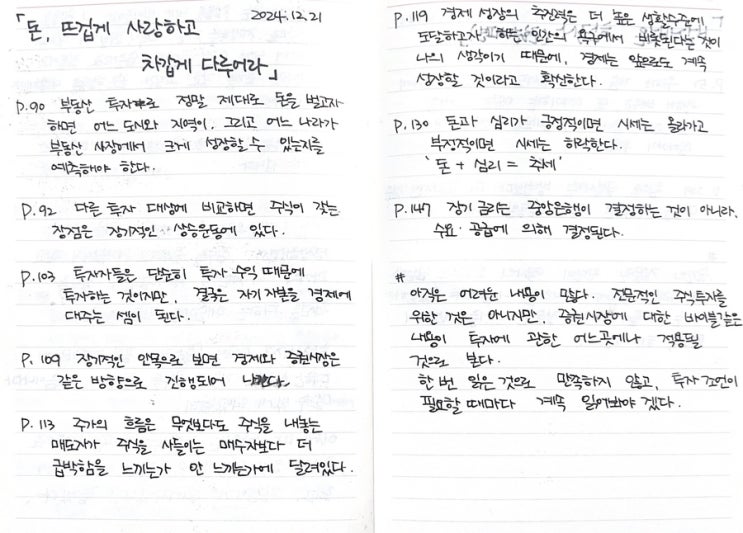 「돈, 뜨겁게 사랑하고
2024.12.21
차갑게 다루어라」
P.90 부동산 투자로 정말 제대로 돈을 벌고자
하면 어느 도시와 지역이, 그리고 어느 나라가
부동산 시장에서 크게 성장할 수 있는지를
예측해야 한다.
P.92 다른 투자 대상에 비교하면 주식이 갖는
장점은 장기적인 상승운동에 있다.
P.103 투자자들은 단순히 투자 수익 때문에
투자하는 것이지만, 결국은 자기 자본을 경제에
대주는 셈이 된다.
P.109 장기적인 안목으로 보면 경제와 증권시장은
같은 방향으로 진행되어 나간다.
P.113 주가의 흐름은 무엇보다도 주식을 내놓는
매도자가 주식을 사들이는 매수자보다 더
급박함을 느끼는가 안 느끼는가에 달려있다.
P.119 경제 성장의 추진력은 더 높은 생활수준에
도달하고자 하는 인간의 욕구에서 비롯된다는 것이
나의 생각이기 때문에, 경제는 앞으로도 계속
성장할 것이라고 확신한다.
P.130 돈과 심리가 긍정적이면 시세는 올라가고
부정적이면 시세는 하락한다.
'돈 + 심리 = 추세'
P.147 장기 금리는 중앙은행이 결정하는 것이 아니라,
수요·공급에 의해 결정된다.
#
아직은 어려운 내용이 많다. 전문적인 주식투자를
위한 것은 아니지만, 증권시장에 대한 바이블같은
내용이 투자에 관한 어느곳에나 적용될
것으로 본다.
한 번 읽은 것으로 만족하지 않고, 투자 조언이
필요할 때마다 계속 읽어봐야 겠다.